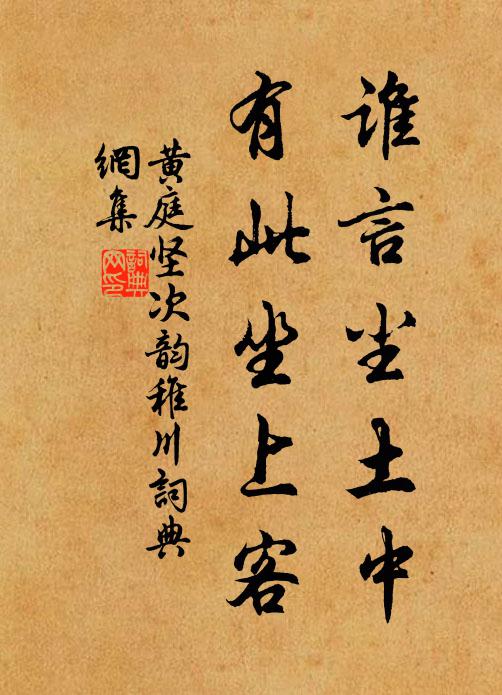 谁言尘土中
有此坐上客
黄庭坚次韵稚川詞典
網集
詞典
网印